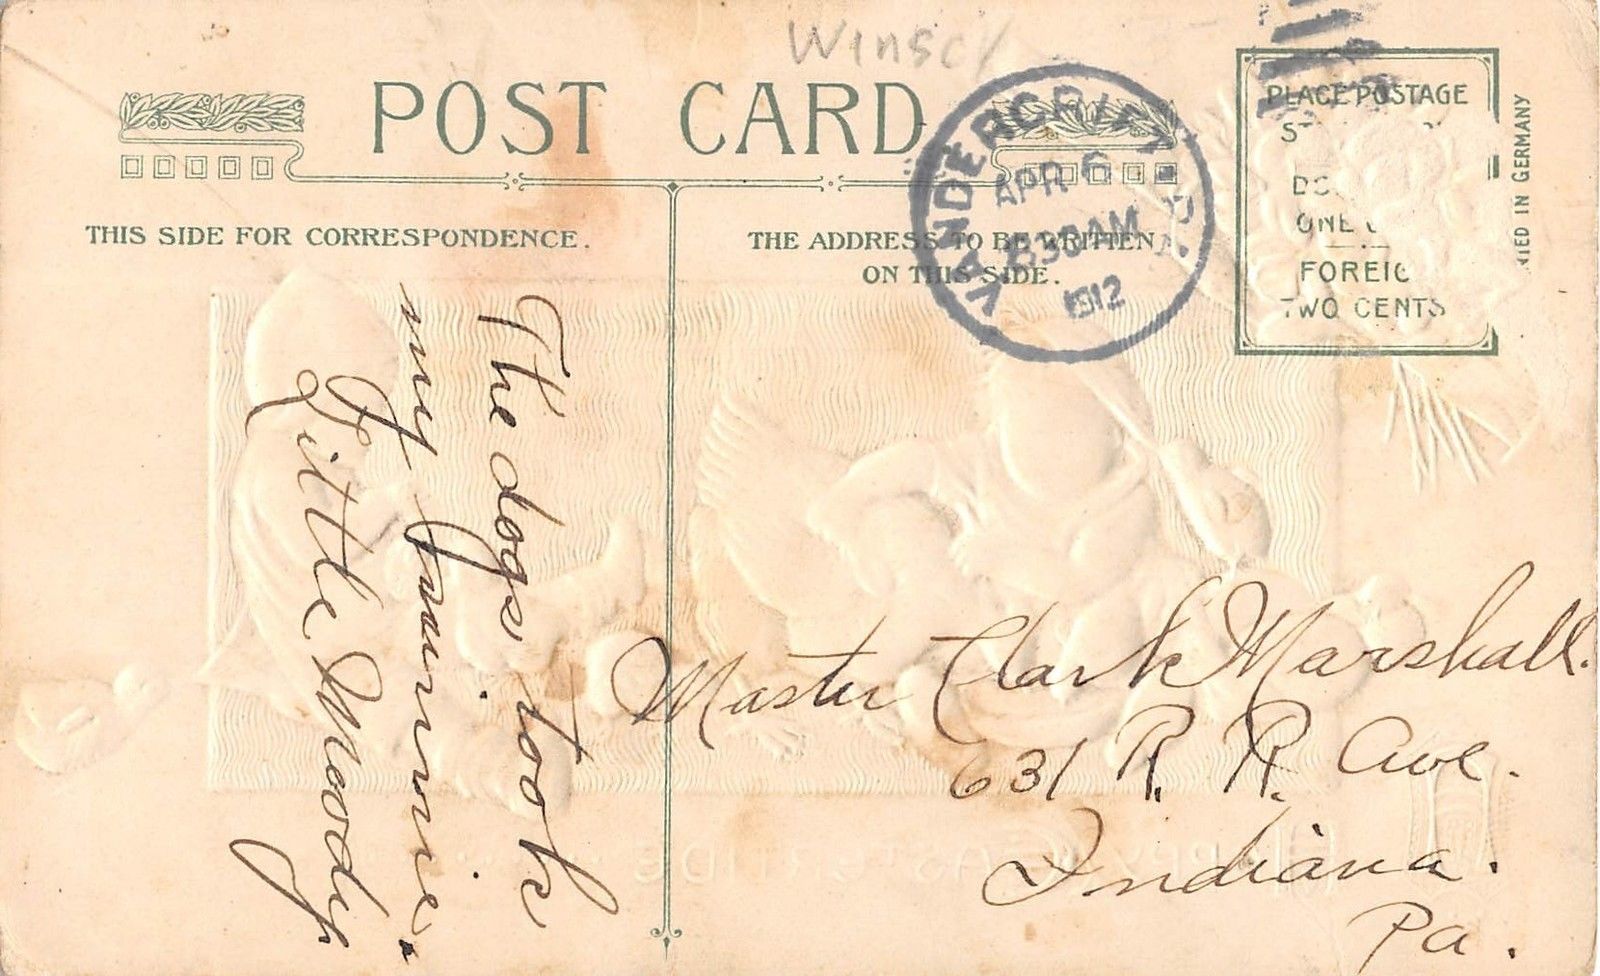 Winsch
POST CARD
THIS SIDE FOR CORRESPONDENCE.
THE ADDRESS TO BE WRITTEN
ON THIS SIDE.
VANDERGRIFT
APR 6
830AM
1912
PLACE POSTAGE
ONE
FOREIG
TWO CENTS
IN GERMANY
The dogs took
my
Little Moody
Master Clark Marshall.
631 R. R. Ave.
Indiana.
Pa.